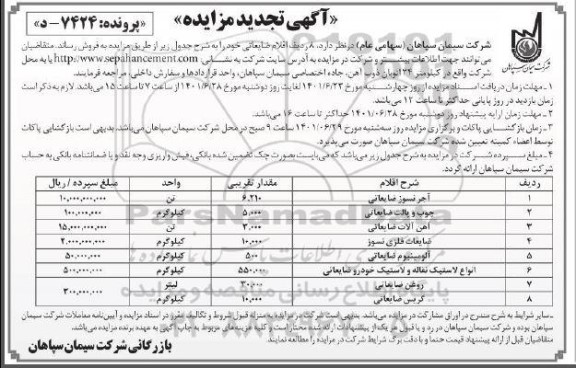 «آگهی تجدید مزایده»
«پرونده: ۷۴۲۴- د»
شرکت سیمان سپاهان
شرکت سیمان سپاهان (سهامی عام) در نظر دارد، ۸ ردیف اقلام ضایعاتی خود را به شرح جدول زیر از طریق مزایده به فروش رساند. متقاضیان
می توانند جهت اطلاعات بیشتر و شرکت در مزایده به آدرس سایت شرکت به نشانی: http://www.sepahancement.com و یا به محل
شرکت واقع در کیلومتر ۳۴ اتوبان ذوب آهن، جاده اختصاصی سیمان سپاهان، واحد قراردادها و سفارش داخلی، مراجعه فرمایند.
۱ـ مهلت زمان دریافت اسناد مزایده از روز چهارشنبه مورخ ۱۴۰۱/۶/۲۳ لغایت روز دوشنبه مورخ ۱۴۰۱/۶/۲۸ از ساعت ۷ تا ساعت ۱۵ می باشد. لازم به ذکر است
زمان بازدید در روز پایانی حداکثر تا ساعت ۱۲ می باشد.
۲ـ مهلت زمان ارایه پیشنهاد روز دوشنبه مورخ ۱۴۰۱/۰۶/۲۸ حداکثر تا ساعت ۱۶ می باشد.
۳ـ زمان بازگشایی پاکات و برگزاری مزایده روز سه شنبه مورخ ۱۴۰۱/۰۶/۲۹ ساعت ۹ صبح در محل شرکت سیمان سپاهان می باشد. بدیهی است بازگشایی پاکات
توسط اعضاء کمیته تعیین شده شرکت سیمان سپاهان صورت می پذیرد.
۴ـ مبلغ سپرده شرکت در مزایده به شرح جدول زیر می باشد که می بایست بصورت چک تضمین شده بانکی، فیش واریزی وجه نقد و یا ضمانتنامه بانکی به حساب
شرکت سیمان سپاهان ارائه گردد.
ردیف شرح اقلام مقدار تقریبی واحد مبلغ سپرده / ریال
۱ آجر نسوز ضایعاتی ۶.۲۱۰ تن ۱۰,۰۰۰,۰۰۰,۰۰۰
۲ چوب و پالت ضایعاتی ۵.۰۰۰ کیلوگرم ۱۰۰,۰۰۰,۰۰۰
۳ آهن آلات ضایعاتی ۳.۰۰۰ تن ۱۵,۰۰۰,۰۰۰,۰۰۰
۴ ضایعات فلزی نسوز ۱۰.۰۰۰ کیلوگرم ۲,۰۰۰,۰۰۰,۰۰۰
۵ آلومینیوم ضایعاتی ۵۰۰ کیلوگرم ۵۰,۰۰۰,۰۰۰
۶ انواع لاستیک نقاله و لاستیک خودرو ضایعاتی ۵۵۰,۰۰۰ کیلوگرم ۵۰۰,۰۰۰,۰۰۰
۷ روغن ضایعاتی ۳۰.۰۰۰ لیتر ۳۰۰,۰۰۰,۰۰۰
۸ گریس ضایعاتی ۱۰.۰۰۰ کیلوگرم
ـ سایر شرایط به شرح مندرج در اوراق مشارکت در مزایده می باشد. بدیهی است شرکت در مزایده به منزله قبول شروط و تکالیف مقرر در اسناد مزایده و آیین نامه معاملات شرکت سیمان
سپاهان بوده و شرکت سیمان سپاهان در رد و یا قبول هر یک از پیشنهادات ارائه شده مختار است و کلیه هزینه های مربوط به چاپ آگهی به عهده برنده مزایده می باشد.
متقاضیان قبل از ارائه پیشنهاد قیمت حتما و با دقت برگ شرایط شرکت در مزایده را مطالعه نمایند.
بازرگانی شرکت سیمان سپاهان